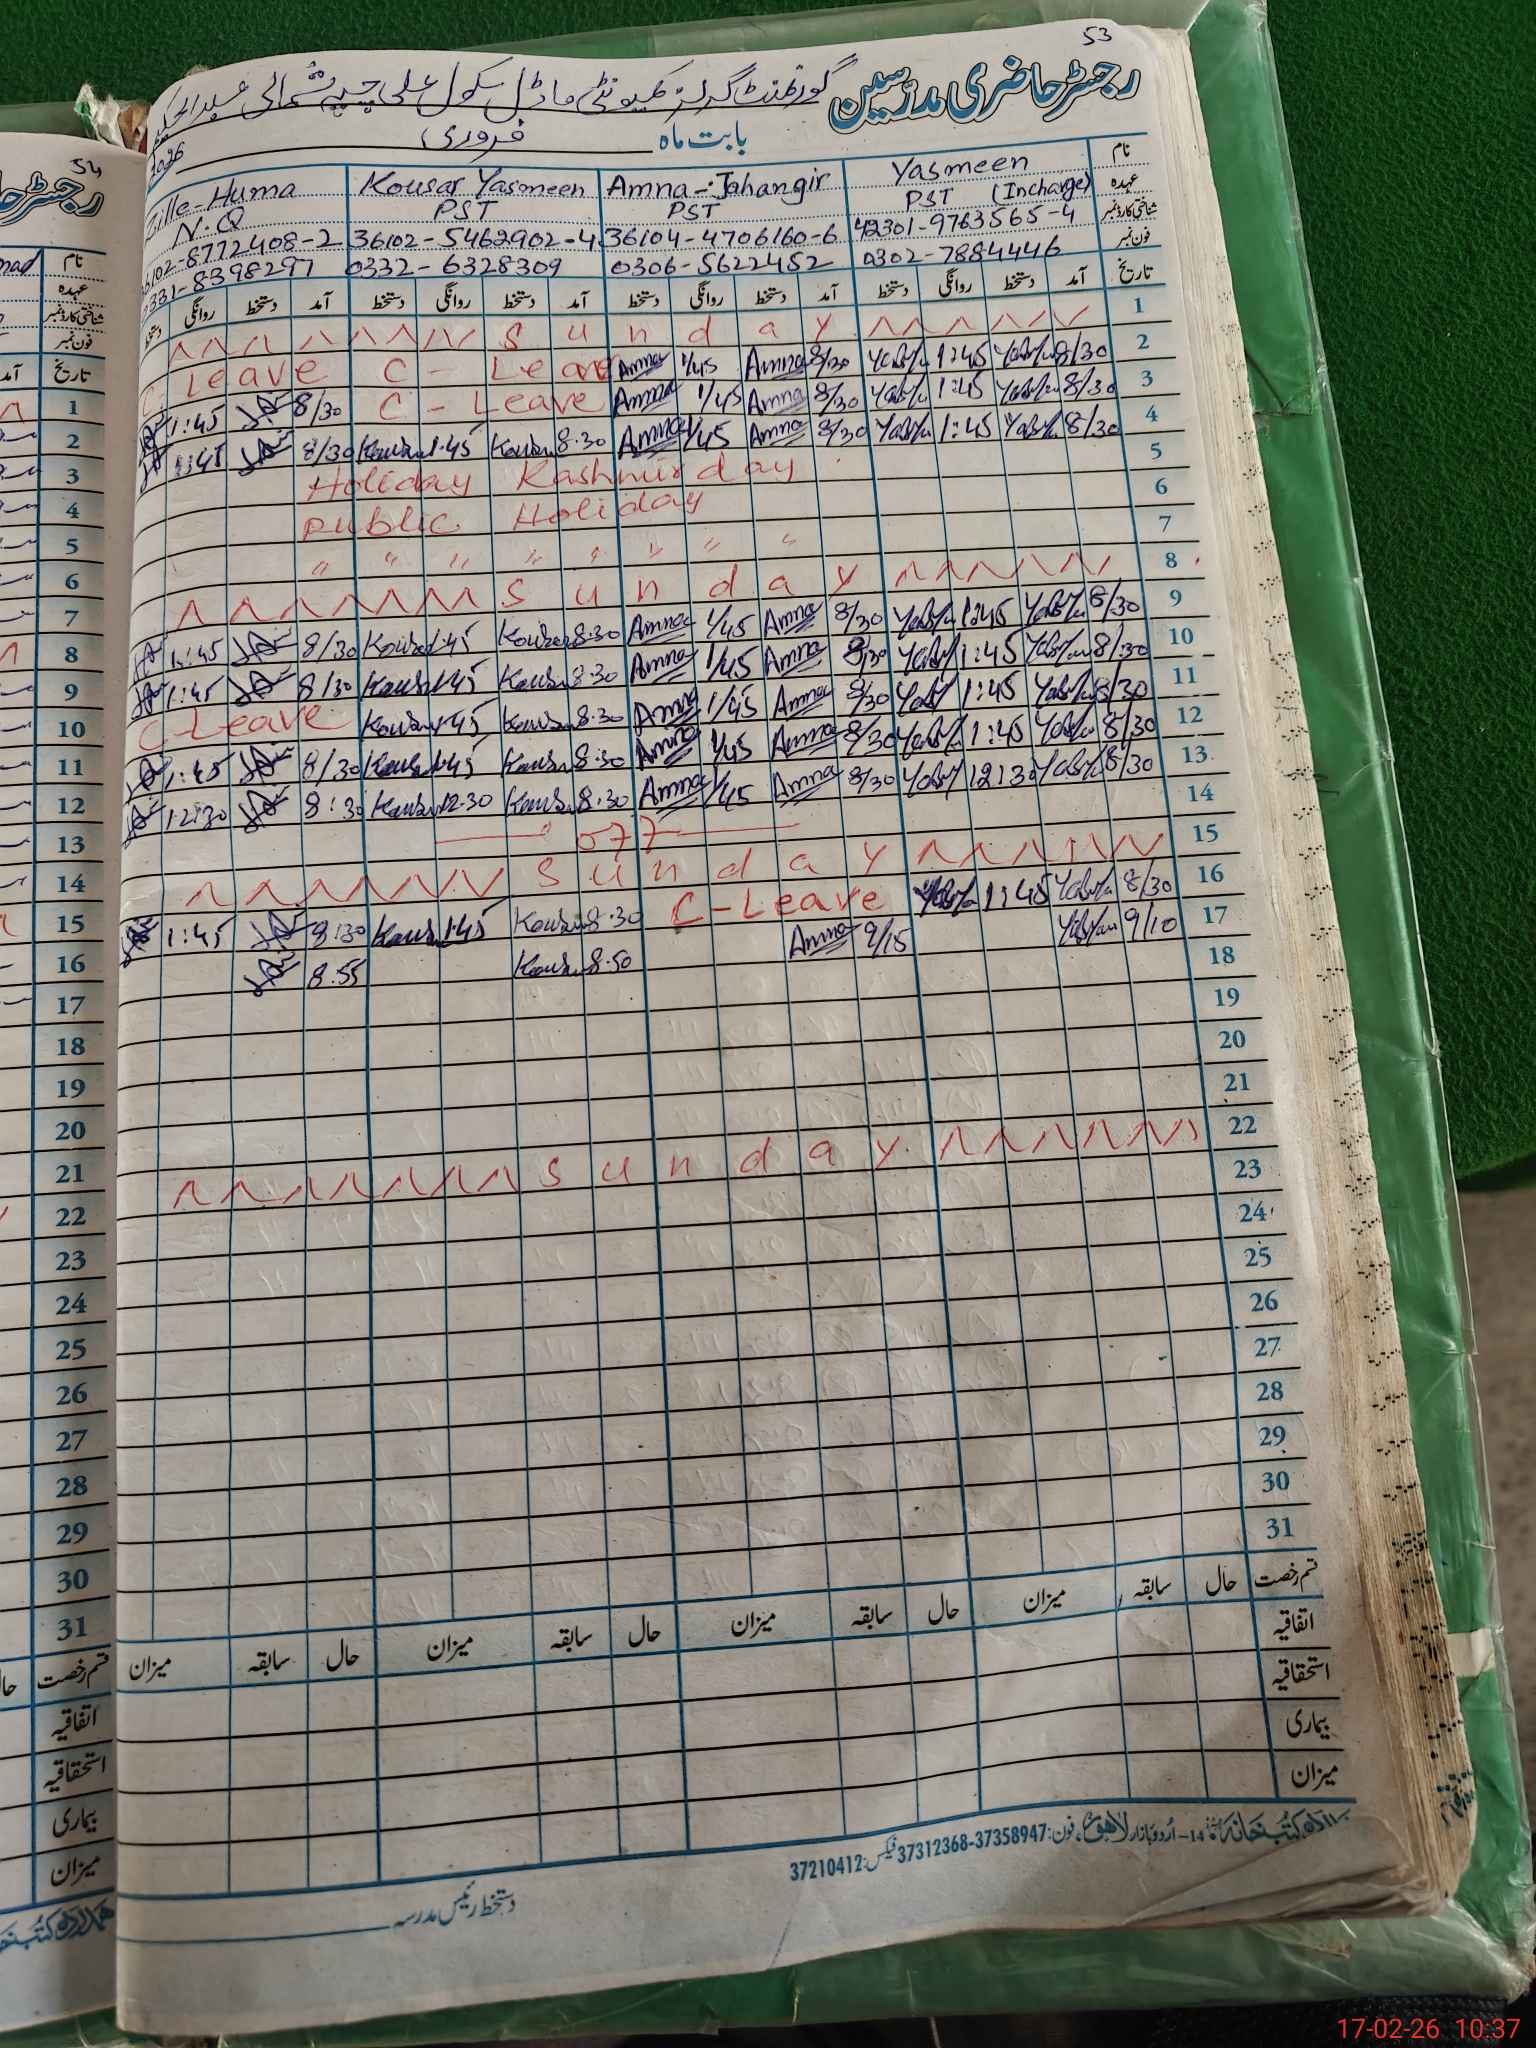 53
رجسٹر حاضری مدرسین گورنمنٹ گرلز کمیونٹی ماڈل سکول علی چپہ شمالی عبدالحکیم
بابت ماہ فروری 2026
نام Yasmeen Amna-Jahangir Kousar Yasmeen Zille-Huma
عہدہ PST (Incharge) PST PST N.Q
شناختی کارڈ نمبر 42301-9763565-4 36104-4706160-6 36102-5462902-4 36102-8772408-2
فون نمبر 0302-7884446 0306-5622452 0332-6328309 0331-8398297
تاریخ آمد دستخط روانگی دستخط آمد دستخط روانگی دستخط آمد دستخط روانگی دستخط آمد دستخط روانگی دستخط
1 Sunday
2 8/30 1:45 8/30 Amna 1/45 Amna C-Leave C Leave
3 8/30 1:45 8/30 Amna 1/45 Amna C-Leave 8/30 1:45
4 8/30 1:45 8/30 Amna 1/45 Amna 8.30 1.45 8/30 1:45
5 Holiday Kashmir day
6 Public Holiday
7 " " " " " " " "
8 Sunday
9 8/30 1:45 8/30 Amna 1/45 Amna 8.30 1.45 8/30 1:45
10 8/30 1:45 8/30 Amna 1/45 Amna 8.30 1.45 8/30 1:45
11 8/30 1:45 8/30 Amna 1/45 Amna 8.30 1.45 C-Leave
12 8/30 1:45 8/30 Amna 1/45 Amna 8.30 1.45 8/30 1:45
13 8/30 12:30 8/30 Amna 1/45 Amna 8.30 12.30 8:30 12:30
14
15 Sunday
16 8/30 1:45 C-Leave 8.30 1.45 8:30 1:45
17 9/10 9/15 Amna 8.50 8.55
18
19
20
21
22 Sunday
23
24
25
26
27
28
29
30
31
قسم رخصت حال سابقہ میزان حال سابقہ میزان حال سابقہ میزان حال سابقہ میزان
اتفاقیہ
استحقاقیہ
بیماری
میزان
14-اُردو بازار لاہور، فون: 37312368-37358947 فیکس: 37210412
دستخط رئیس مدرسہ
54
نام
عہدہ
شناختی کارڈ نمبر
فون نمبر
تاریخ
1
2
3
4
5
6
7
8
9
10
11
12
13
14
15
16
17
18
19
20
21
22
23
24
25
26
27
28
29
30
31
قسم رخصت
اتفاقیہ
استحقاقیہ
بیماری
میزان
17-02-26 10:37